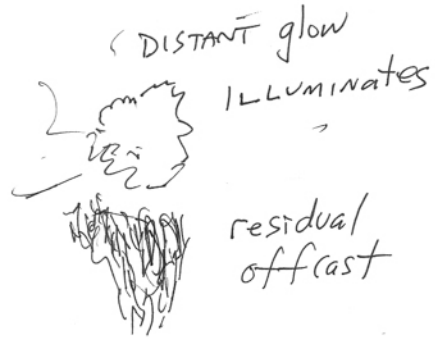 DISTANT glow
ILLUMINAtes
residual
offcast